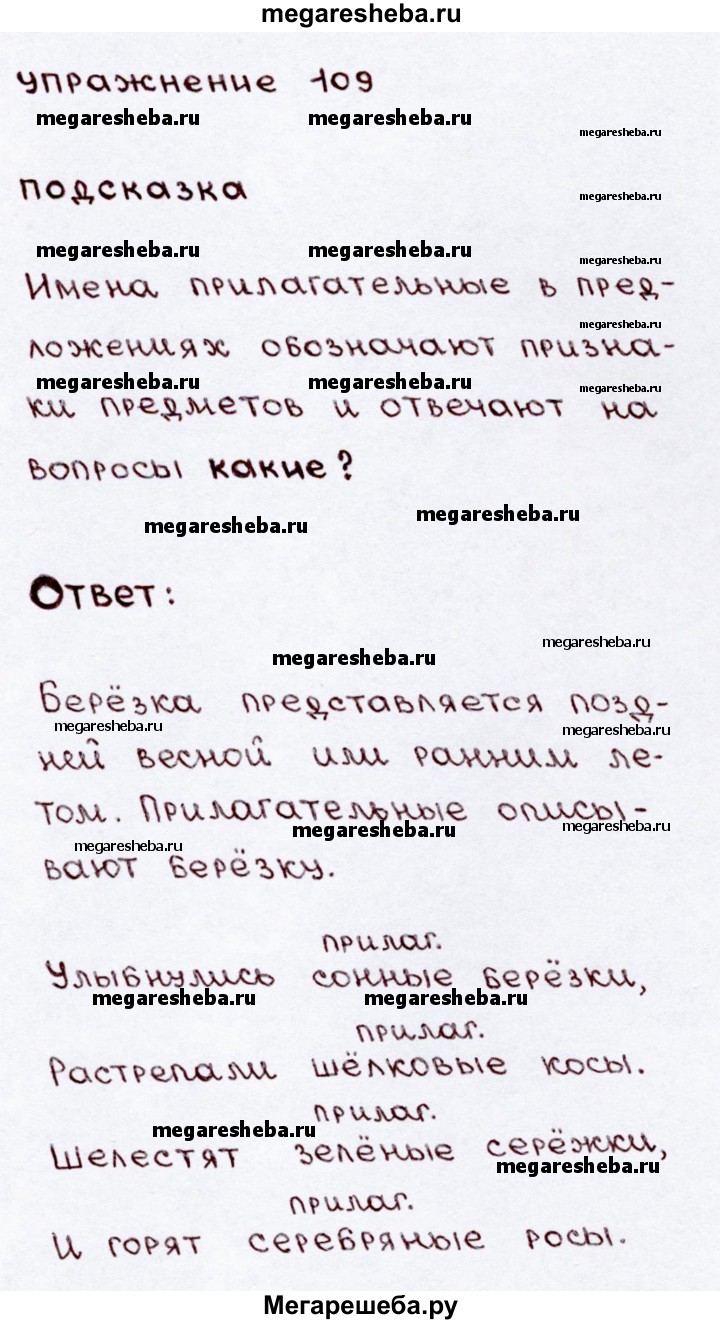 megaresheba.ru
упражнение 109
megaresheba.ru megaresheba.ru megaresheba.ru
подсказка megaresheba.ru
megaresheba.ru megaresheba.ru megaresheba.ru
Имена прилагательные в пред-
megaresheba.ru
ложениях обозначают призна-
megaresheba.ru megaresheba.ru megaresheba.ru
ки предметов и отвечают на
вопросы какие?
megaresheba.ru megaresheba.ru
Ответ:
megaresheba.ru
megaresheba.ru
Берёзка представляется позд-
megaresheba.ru megaresheba.ru
ней весной или ранним ле-
том. Прилагательные описы-
megaresheba.ru megaresheba.ru
megaresheba.ru
вают берёзку.
прилаг.
Улыбнулись сонные берёзки,
megaresheba.ru megaresheba.ru
прилаг.
Растрепали шёлковые косы.
прилаг.
megaresheba.ru
Шелестят зелёные серёжки,
megaresheba.ru
прилаг.
И горят серебряные росы.
Мегарешеба.ру